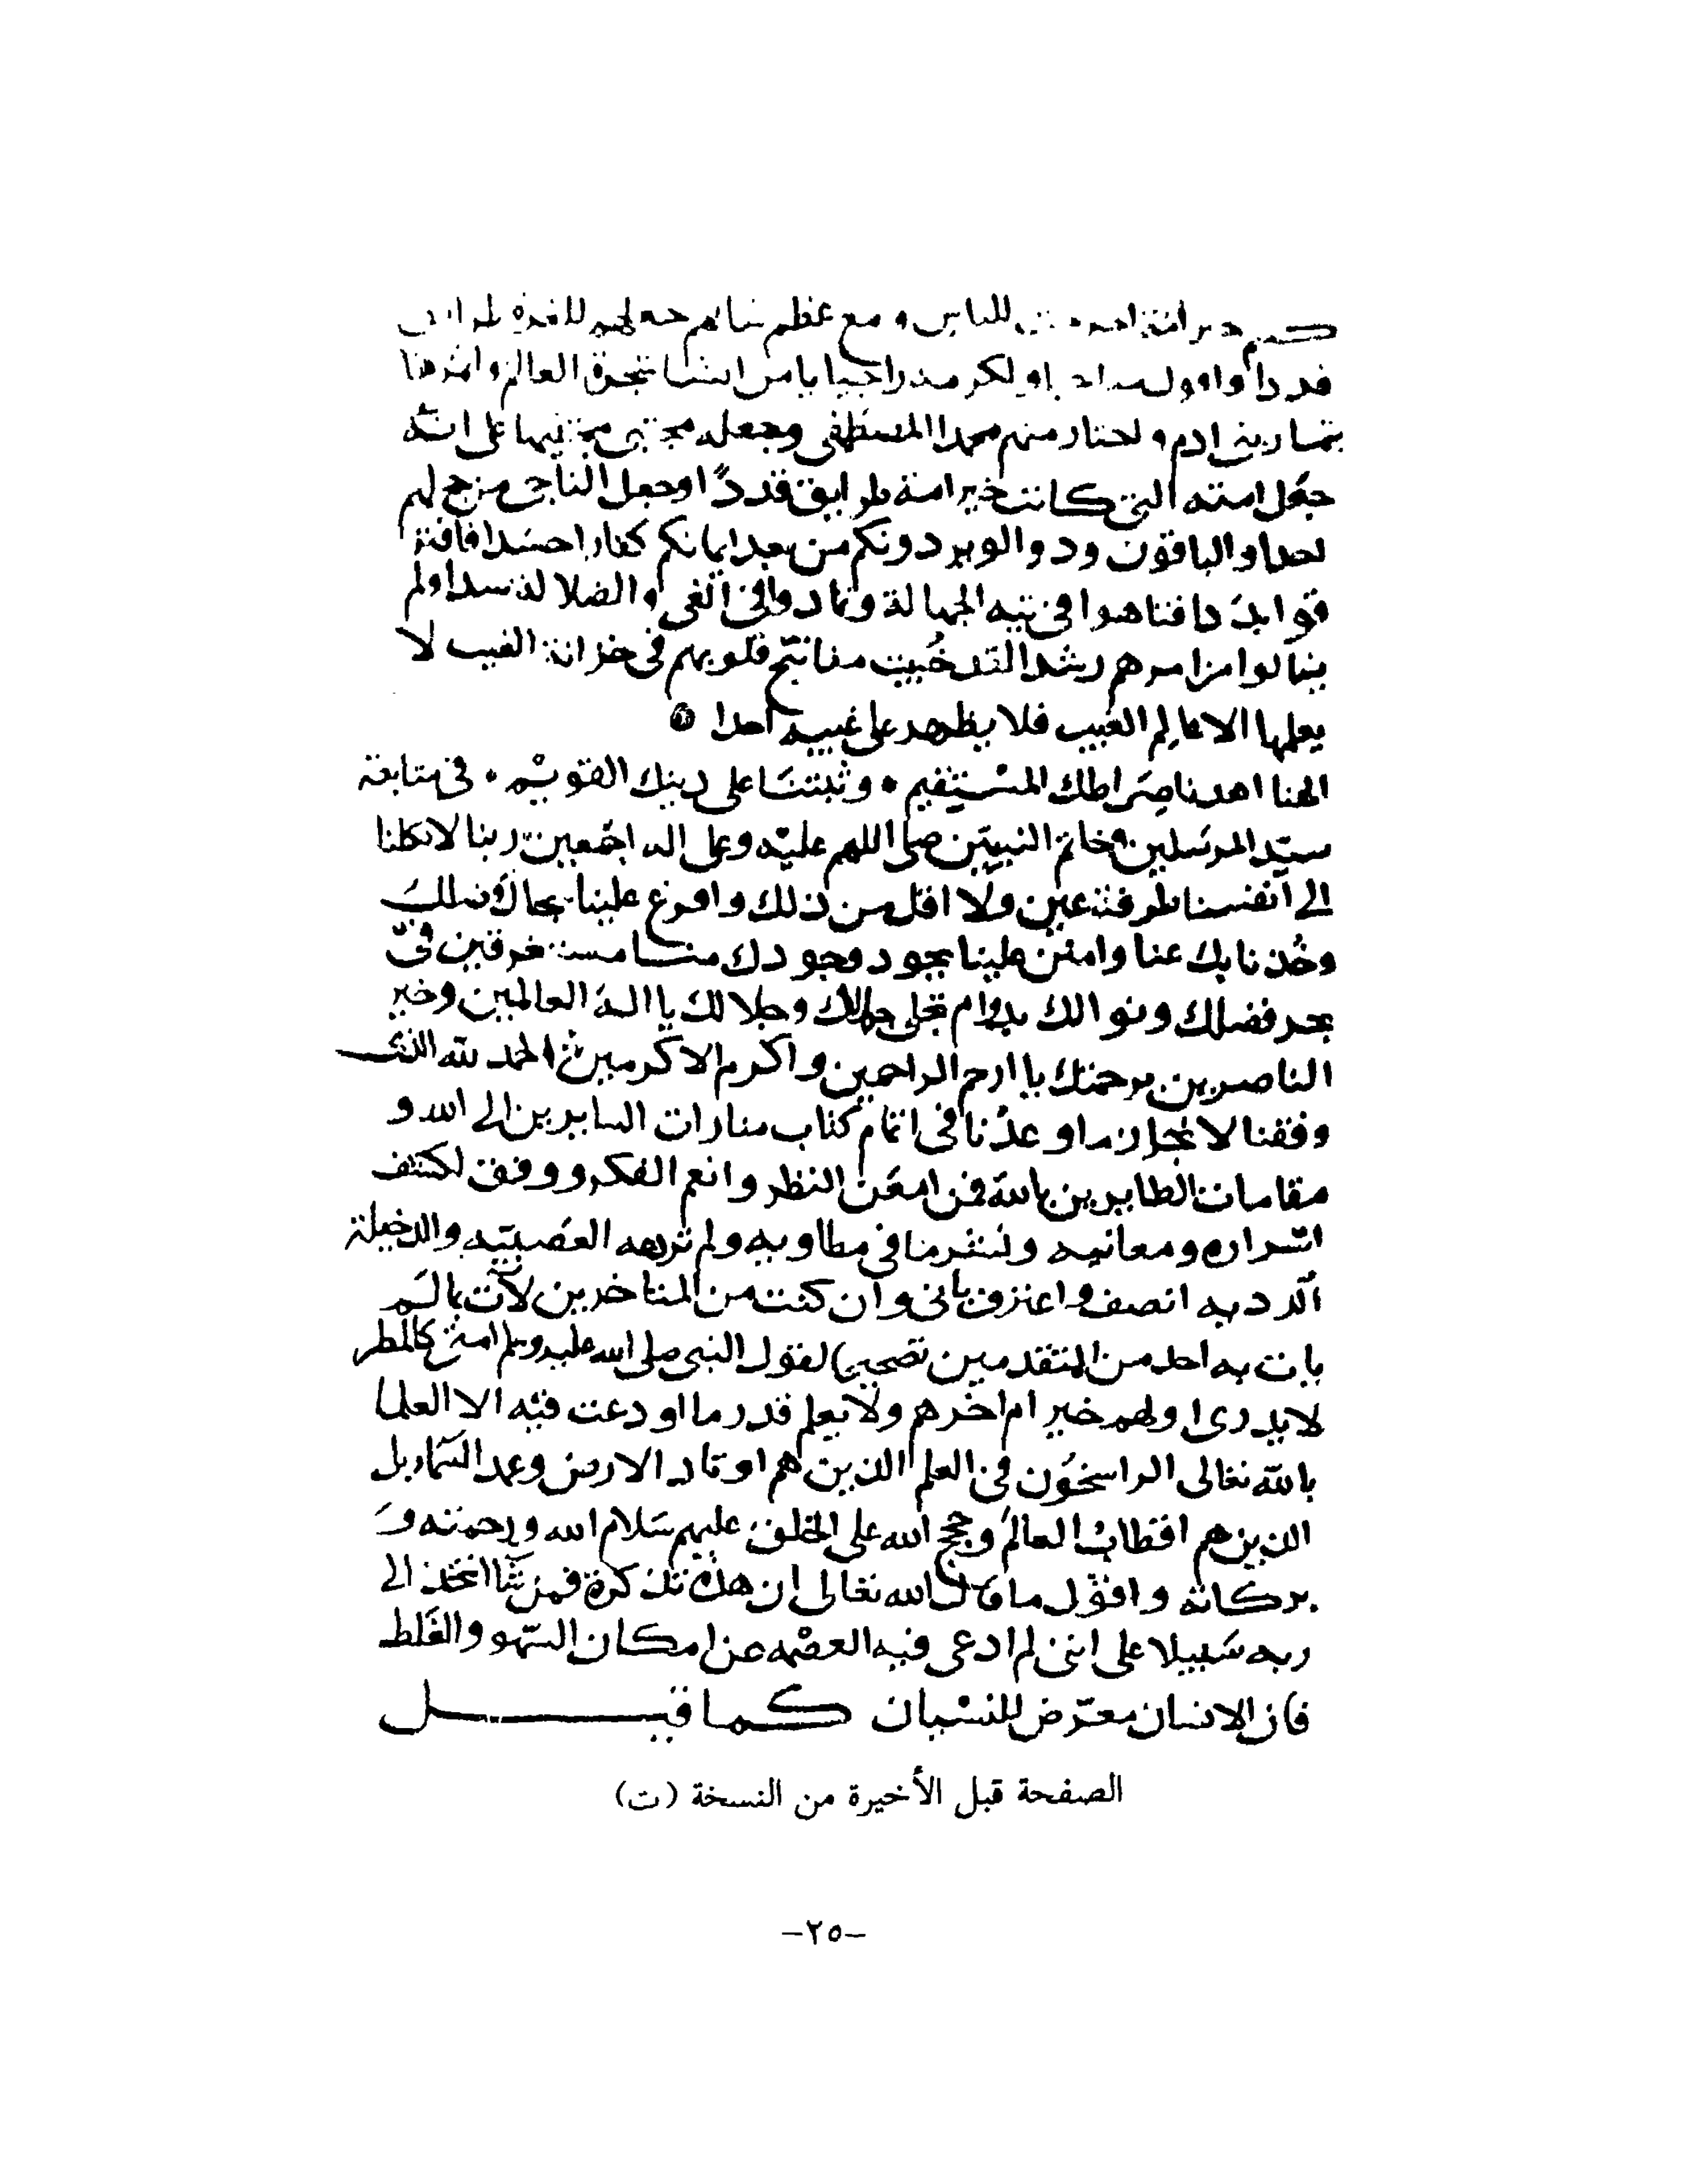 كنتم خير امة اخرجت للناس و مع عظم شانهم جعلهم للتفرقة طرايق
قددا
بثمار بني ادم و اختار منهم محمدا المصطفى وجعله مجتبى مجتبيها على انه
جعل امته التي كانت خير امة طرايق قددًا وجعل الناجي من جملهم
احدا والباقون ودوا لو يردونكم من بعد ايمانكم كفارا حسدا فافتر
قوا بددا فتاهوا في تيه الجهالة وتمادوا في الغي والضلالة سدا ولم
ينالوا من امرهم رشدا لقد خُبيت مفاتيح قلوبهم في خزانة الغيب لا
يعلمها الا عالم الغيب فلا يظهر على غيبه احدا
الهنا اهدنا صِرَاطك المسْتقيم • وثبتنَا على دينك القويْم • في متابعة
سيّد المرسَلين وخاتم النبيّين صل اللهم عليْه وعلى اله اجمعين ربنا لا تكلنا
الى انفسنا طرفة عين ولا اقل من ذلك وافرغ علينا سجال فضلك
وخُذنا بك عنا وامنن علينا بجود وجودك منا مستغرقين في
بحر فضلك ونوالك بدوام تجلى جمالك وجلالك يا اله العالمين وخير
الناصرين برحمتك يا ارحم الراحمين واكرم الاكرمين ثم الحمد لله الذي
وفقنا لانجاز ما وعدْنا في اتمام كتاب منارات السايرين الى الله و
مقامات الطايرين بالله فمن امعَن النظر وانعم الفكر ووفق لكشف
اسْراره ومعانيه ولنشر ما في مطاويه ولم ترهقه العَصبيّة والدخيلة
الردية انصف واعترف باني وان كنت من المتاخرين لآت بما لَم
يات به احد من المتقدمين تصحيحا لقول النبي صلى الله عليه وسلم امتي كالمطر
لا يدرى اولهم خير ام اخرهم ولا يعلم قدر ما اودعت فيْه الا العلما
بالله تعالى الراسخُون في العلم الذين هم اوتاد الارض وعمد السّما بل
الذين هم اقطابُ العالم وحجج الله على الخلق عليهم سَلام الله ورحمته وَ
بركاته واقول ما قال الله تعالى ان هذه تذكرة فمن شَا اتخذ الى
ربه سَبيلا على انني لم ادعى فيه العصْمه عن امكان السّهو والغَلط
فان الانسان معرّض للنسْيان كما قيل
الصفحة قبل الأخيرة من النسخة (ت)
-٢٥-